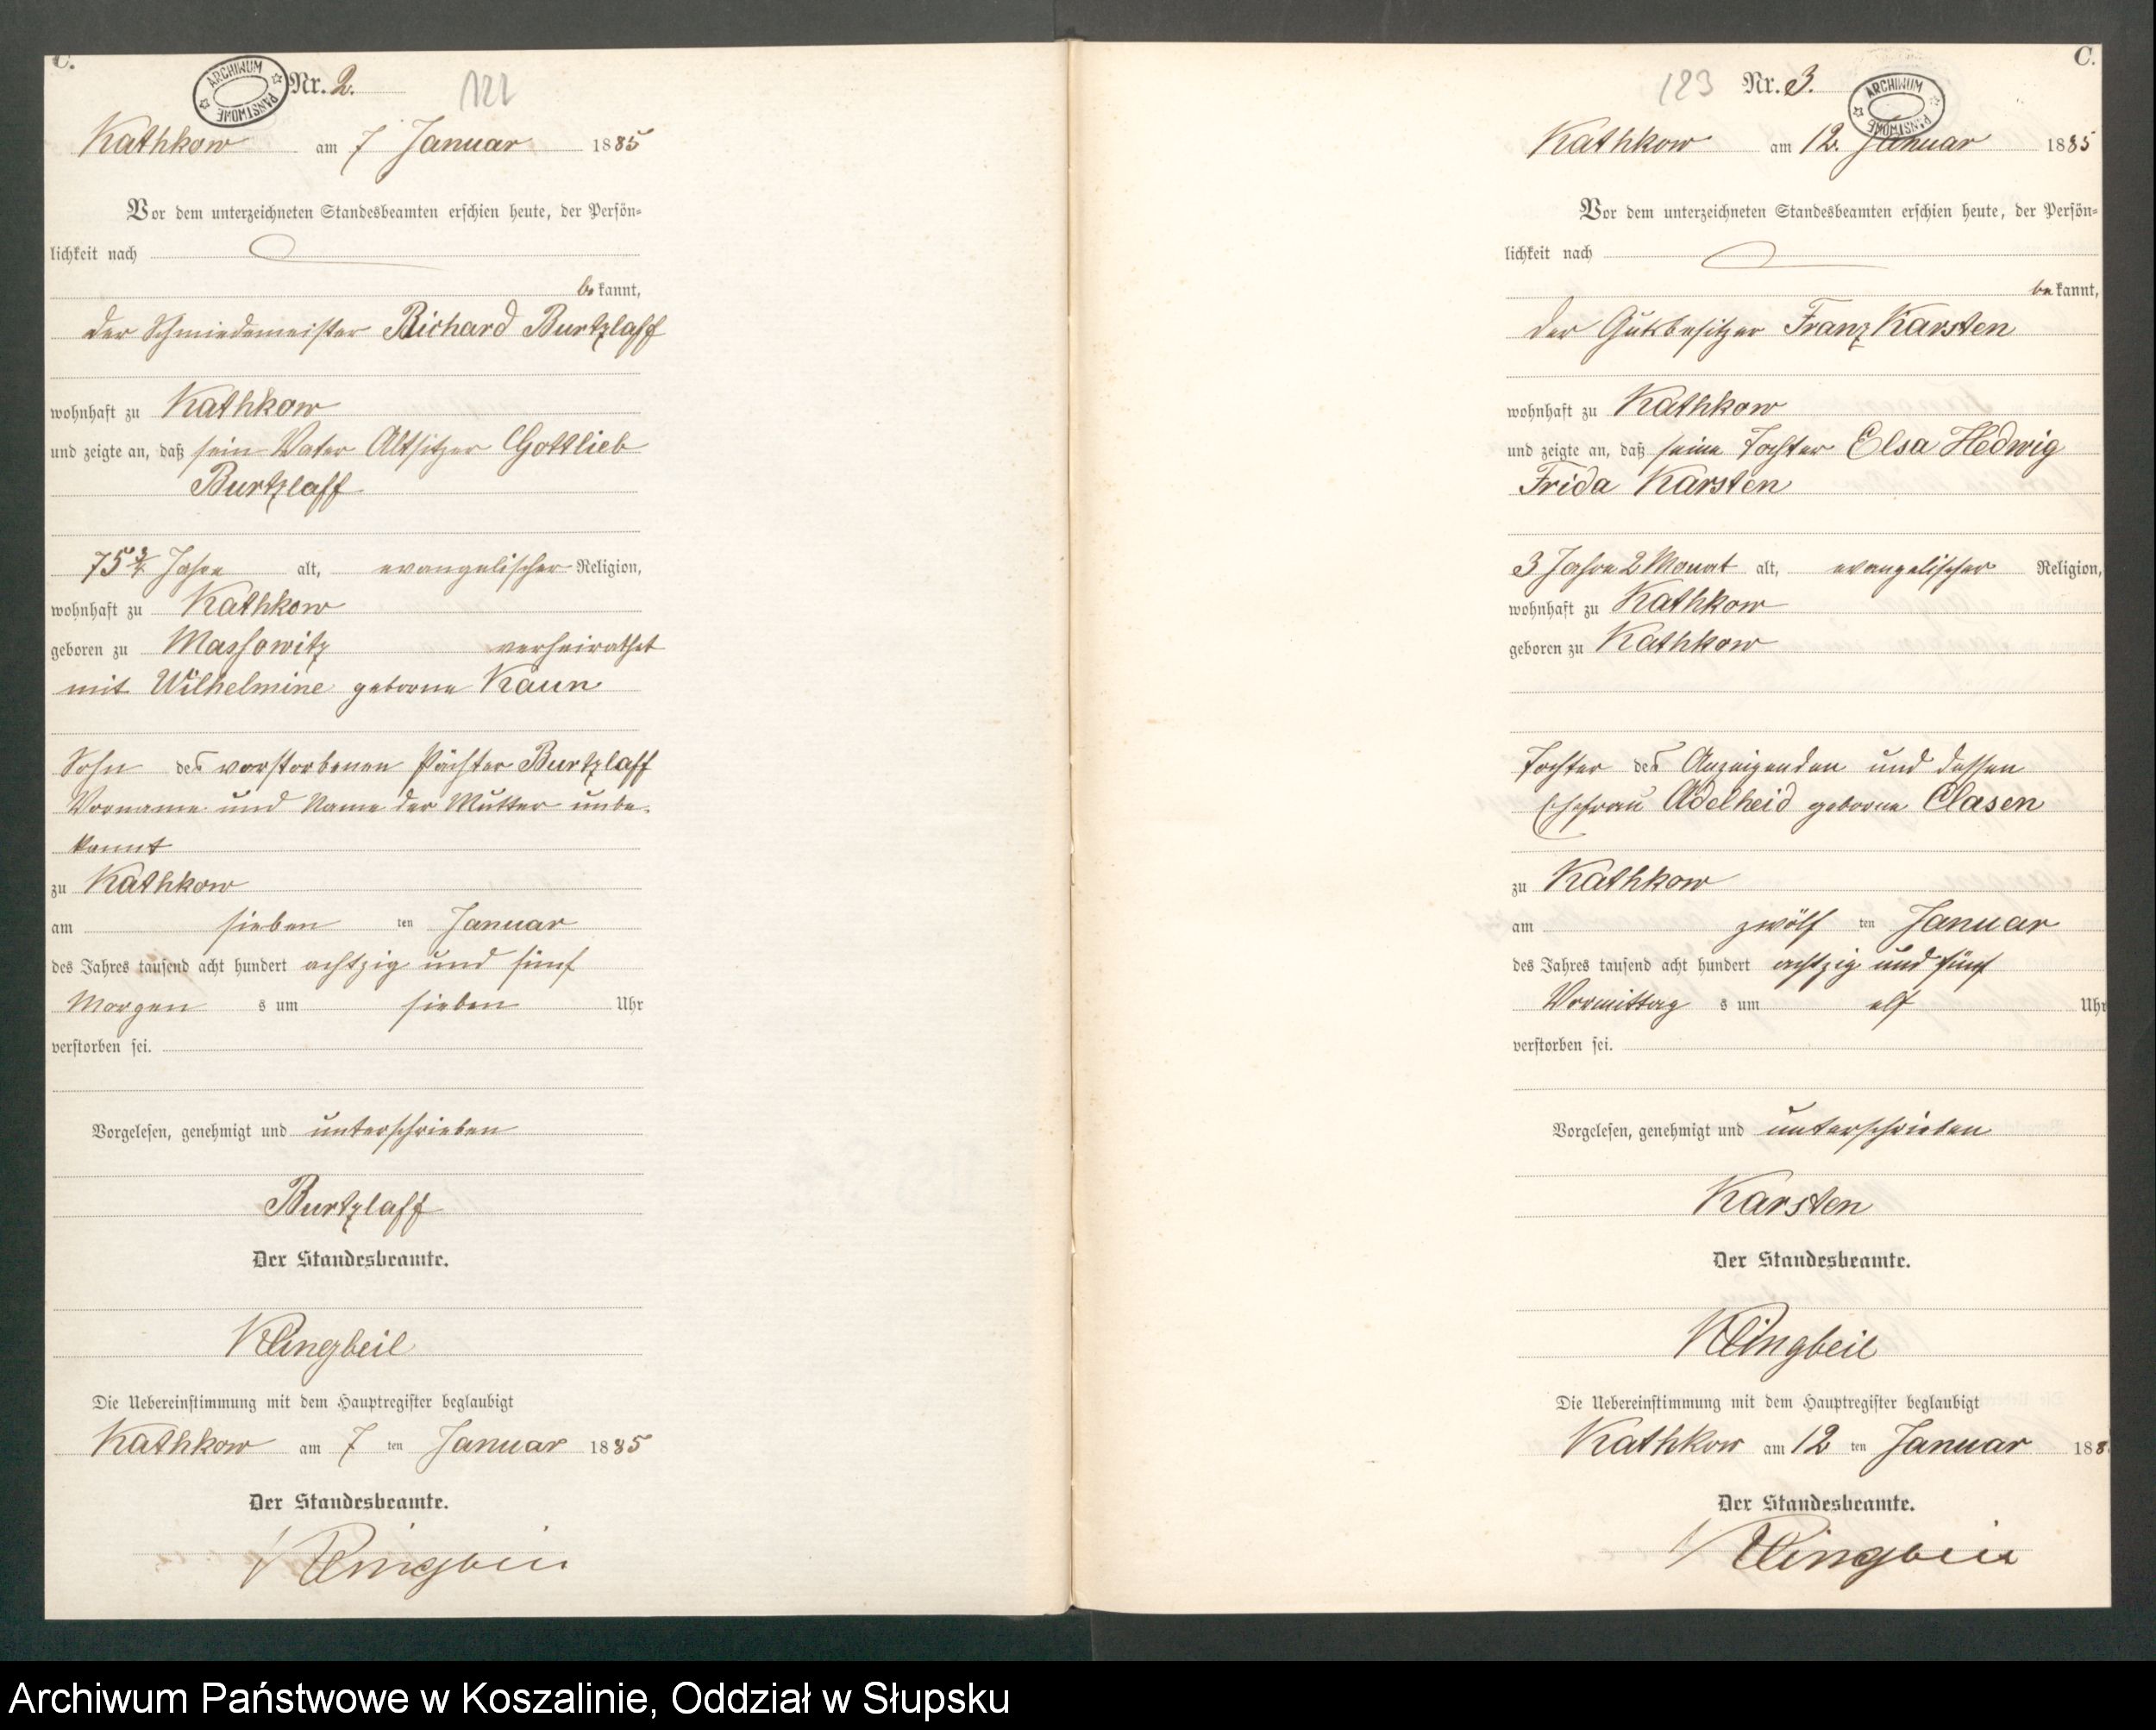 C.
ARCHIWUM PAŃSTWOWE
Nr. 2.
122
Kathkow am 7 Januar 1885
Vor dem unterzeichneten Standesbeamten erschien heute, der Persön=
lichkeit nach
bekannt,
der Schmiedemeister Richard Burtzlaff
wohnhaft zu Kathkow
und zeigte an, daß sein Vater Altsitzer Gottlieb
Burtzlaff
75 3/4 Jahre alt, evangelischer Religion,
wohnhaft zu Kathkow
geboren zu Massowitz verheirathet
mit Wilhelmine geborne Kaun
Sohn des verstorbenen Pächter Burtzlaff
Vorname und Name der Mutter unbe-
kannt
zu Kathkow
am sieben ten Januar
des Jahres tausend acht hundert achtzig und fünf
Morgen s um sieben Uhr
verstorben sei.
Vorgelesen, genehmigt und unterschrieben
Burtzlaff
Der Standesbeamte.
Klingbeil
Die Uebereinstimmung mit dem Hauptregister beglaubigt
Kathkow am 7 ten Januar 1885
Der Standesbeamte.
Klingbeil
C.
123
Nr. 3.
ARCHIWUM PAŃSTWOWE
Kathkow am 12. Januar 1885
Vor dem unterzeichneten Standesbeamten erschien heute, der Persön=
lichkeit nach
bekannt,
der Gutsbesitzer Franz Karsten
wohnhaft zu Kathkow
und zeigte an, daß seine Tochter Elsa Hedwig
Frida Karsten
3 Jahre 2 Monat alt, evangelischer Religion,
wohnhaft zu Kathkow
geboren zu Kathkow
Tochter des Anzeigenden und dessen
Ehefrau Adelheid geborne Clasen
zu Kathkow
am zwölf ten Januar
des Jahres tausend acht hundert achtzig und fünf
Vormittag s um elf Uhr
verstorben sei.
Vorgelesen, genehmigt und unterschrieben
Karsten
Der Standesbeamte.
Klingbeil
Die Uebereinstimmung mit dem Hauptregister beglaubigt
Kathkow am 12 ten Januar 188
Der Standesbeamte.
Klingbeil
Archiwum Państwowe w Koszalinie, Oddział w Słupsku